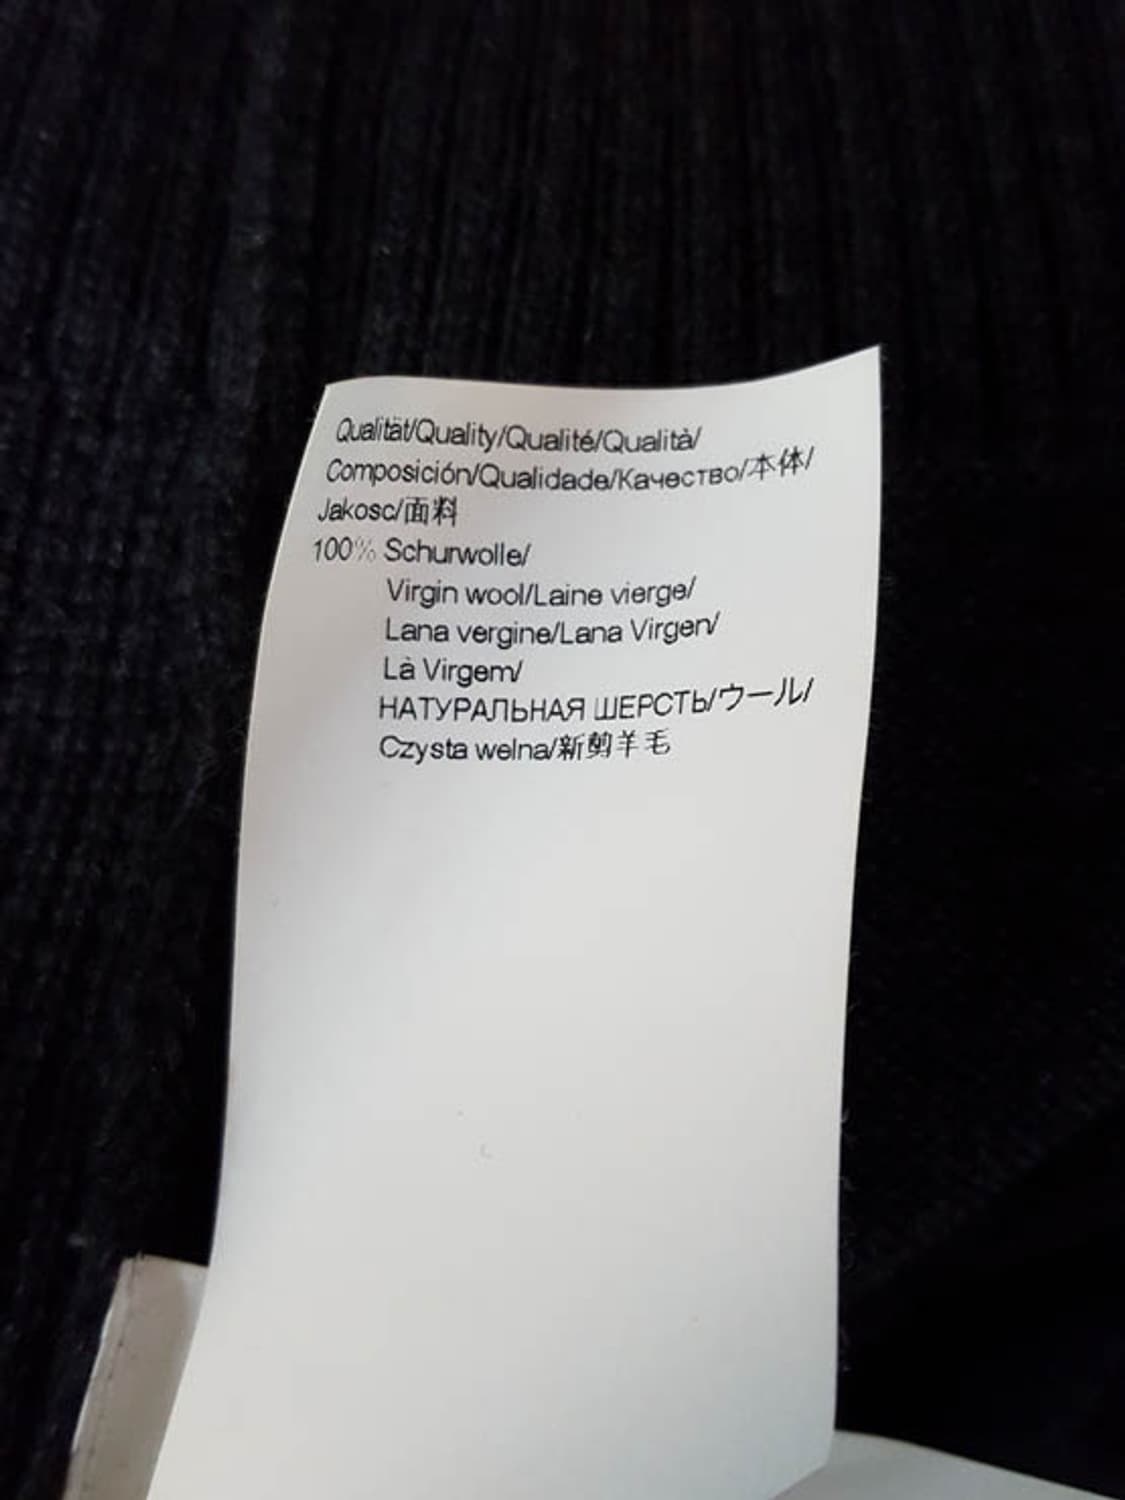 Qualität/Quality/Qualité/Qualità/
Composición/Qualidade/Качество/本体/
Jakosc/面料
100% Schurwolle/
Virgin wool/Laine vierge/
Lana vergine/Lana Virgen/
Là Virgem/
НАТУРАЛЬНАЯ ШЕРСТЬ/ウール/
Czysta welna/新剪羊毛